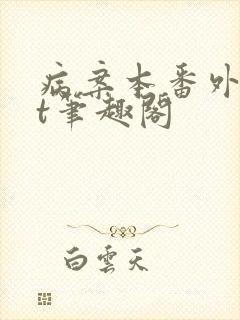 病案本番外
t笔趣阁
白云天